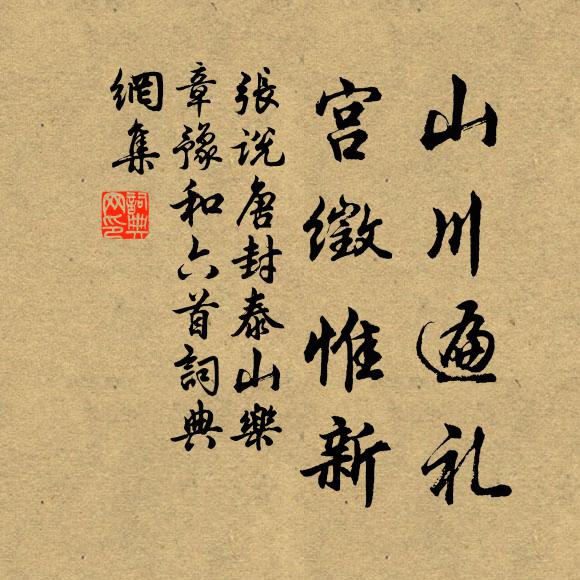 山川遍礼
宫徵惟新
張說唐封泰山樂
章豫和六首詞典
網集
詞典網印